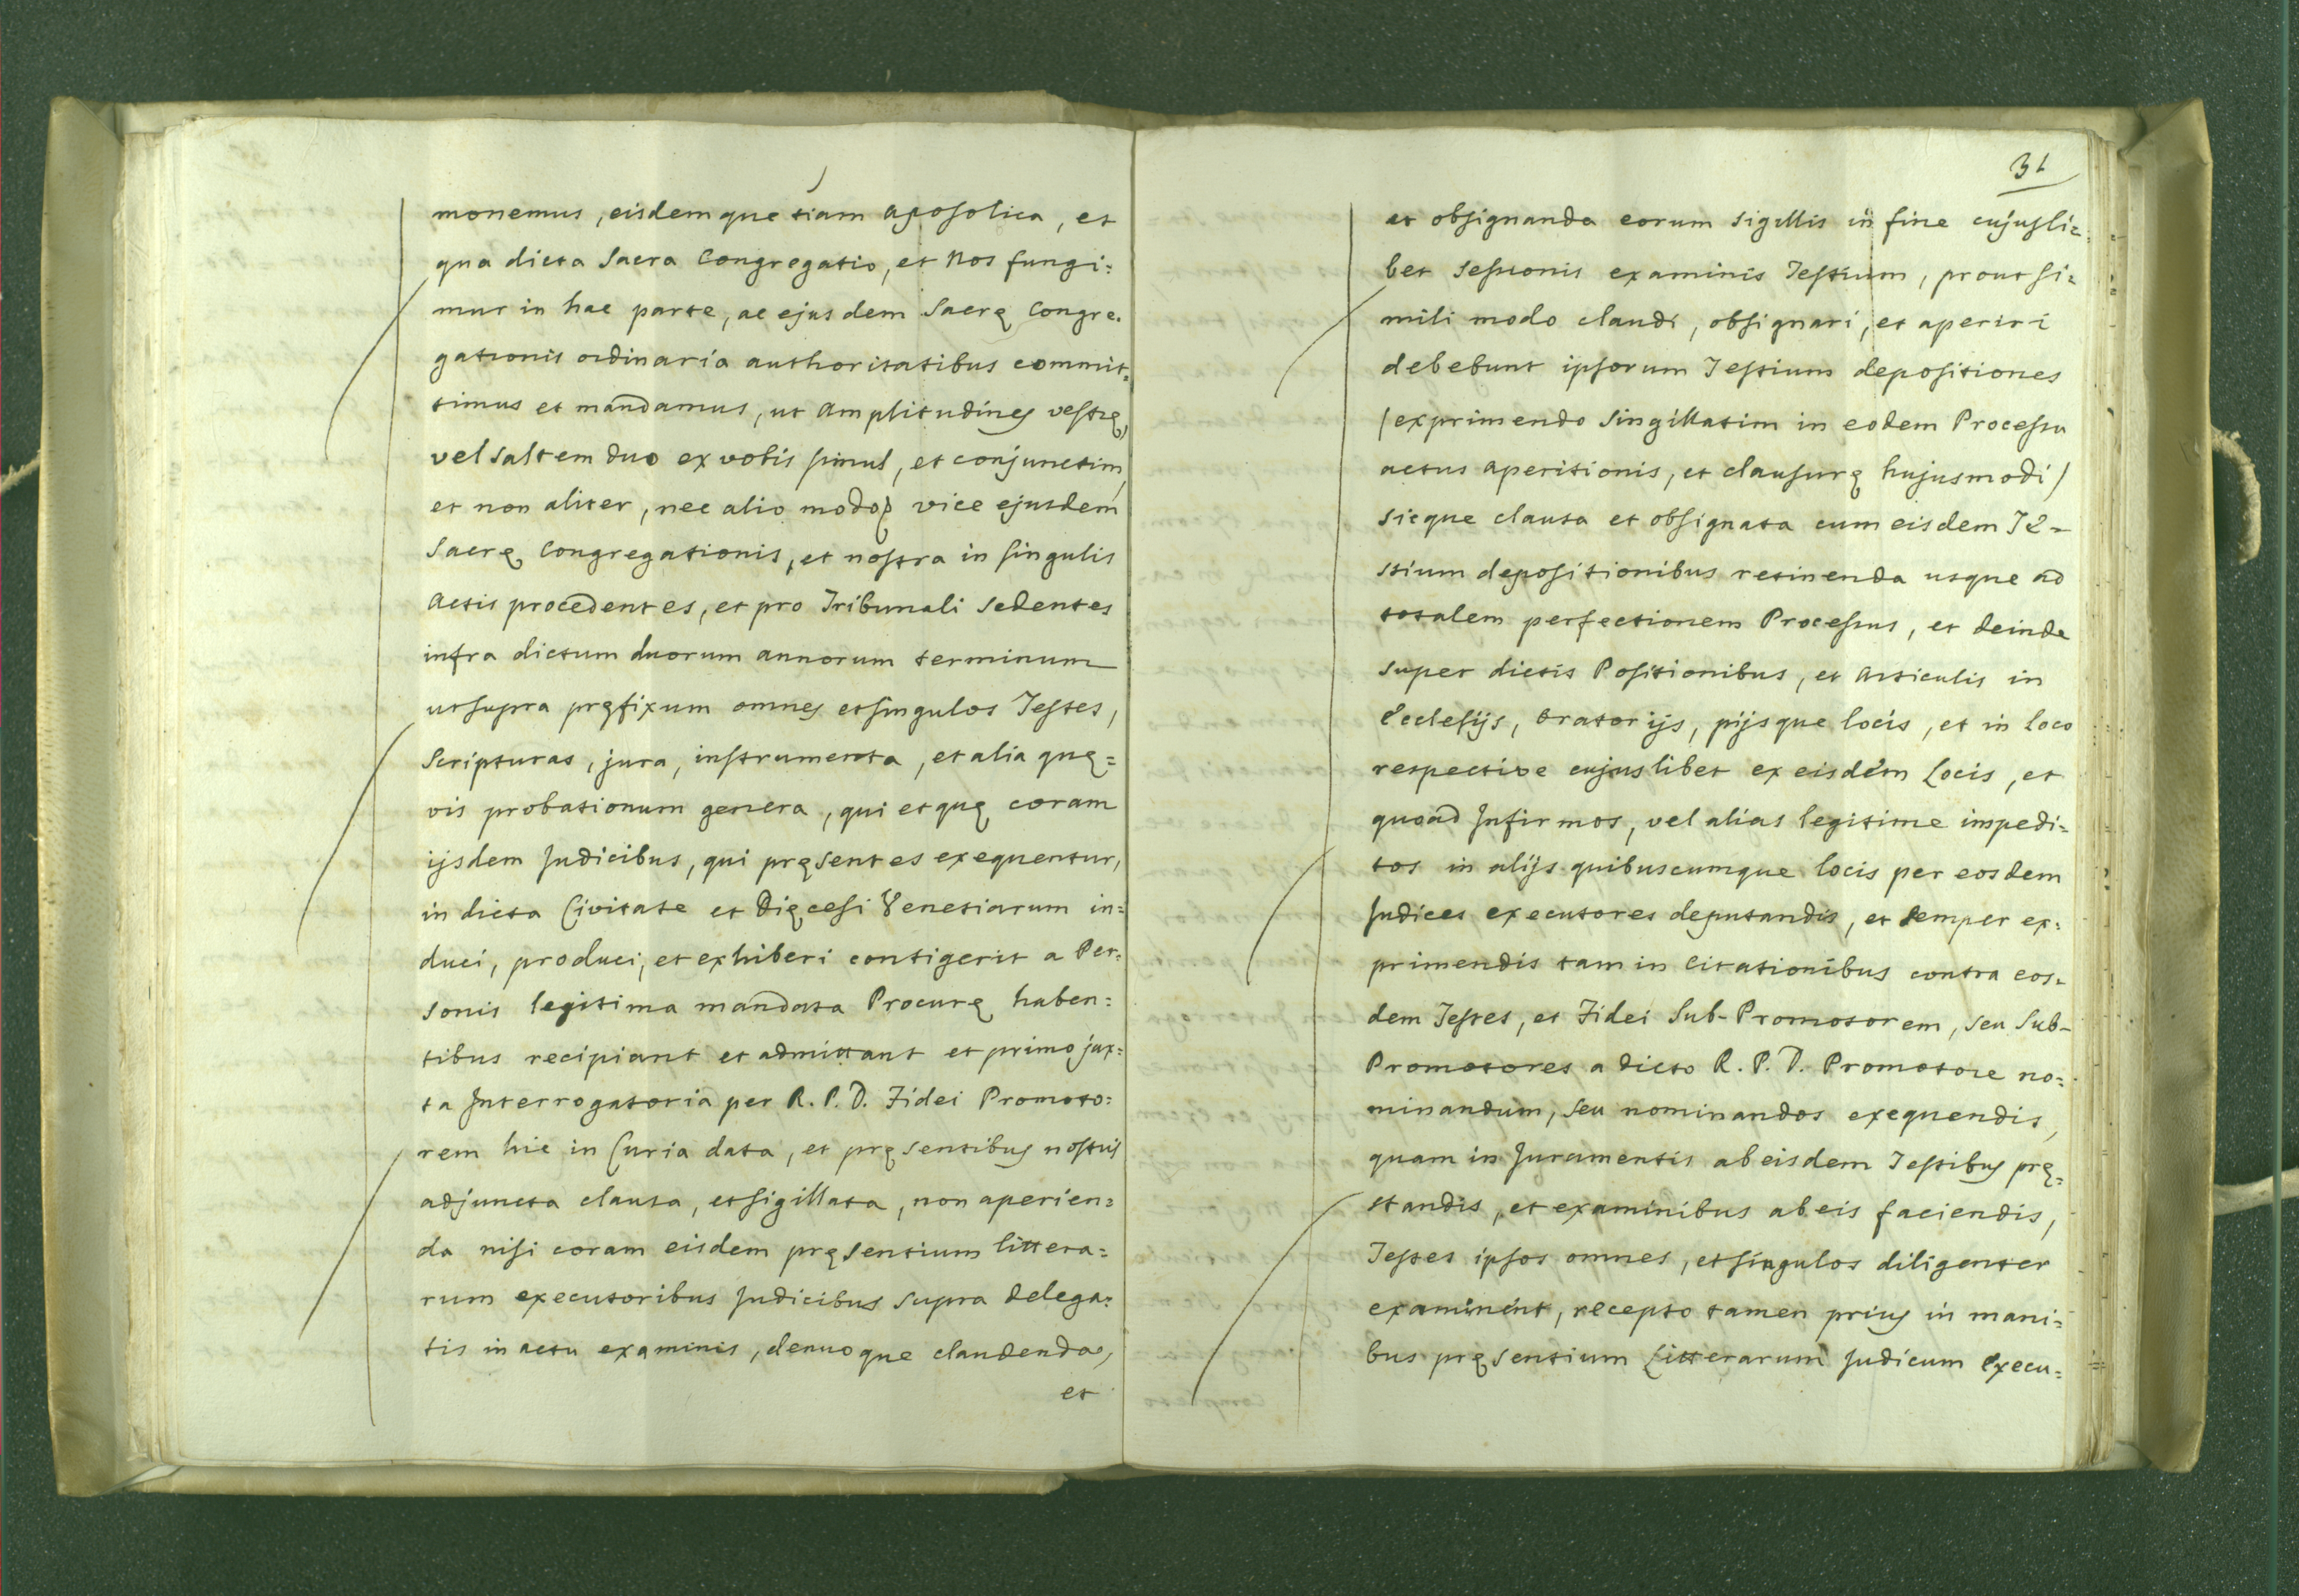 monemus, eisdemque tiam aposolica, et
qua dicta Sacra Congregatio, et Nos fungi=
mur in hac parte, ac ejusdem Sacrę Congre=
gationis ordinaria authoritatibus commit=
timus et mandamus, ut Amplitudines vestrę,
vel saltem duo ex vobis simul, et conjunctim,
et non aliter, nec alio modo, vice ejusdem
Sacrę Congregationis, et nostra in singulis
Actis procedentes, et pro Tribunali sedentes
infra dictum duorum annorum terminum
ut supra pręfixum omnes et singulos Testes,
Scripturas, jura, instrumenta, et alia quę=
vis probationum genera, qui et quę coram
ijsdem Judicibus, qui pręsentes exequentur,
in dicta Civitate et Dięcesi Venetiarum in=
duci, produci, et exhiberi contigerit a Per=
sonis legitima mandata Procurę haben=
tibus recipiant et admittant et primo jux=
ta Interrogatoria per R. P. D. Fidei Promoto=
rem hic in Curia data, et pręsentibus nostris
adjuncta clausa, et sigillata, non aperien=
da nisi coram eisdem pręsentium littera=
rum executoribus Judicibus supra delega=
tis in actu examinis, denuoque claudenda,
et
31
et obsignanda eorum sigillis in fine cujusli=
bet sessionis examinis Testium, prout si=
mili modo claudi, obsignari, et aperiri
debebunt ipsorum Testium depositiones
(exprimendo singillatim in eodem Processu
actus aperitionis, et clausurę hujusmodi)
sicque clausa et obsignata cum eisdem Te=
stium depositionibus retinenda usque ad
totalem perfectionem Processus, et deinde
super dictis Positionibus, et Articulis in
Ecclesijs, Oratorijs, pijsque locis, et in loco
respective cujuslibet ex eisdem Locis, et
quoad Infirmos, vel alias legitime impedi=
tos in alijs quibuscumque locis per eosdem
Judices executores deputandis, et semper ex=
primendis tam in Citationibus contra eos=
dem Testes, et Fidei Sub-Promotorem, seu Sub-
Promotores a dicto R. P. D. Promotore no=
minandum, seu nominandos exequendis,
quam in Juramentis ab eisdem Testibus prę=
standis, et examinibus ab eis faciendis,
Testes ipsos omnes, et singulos diligenter
examinent, recepto tamen prius in mani=
bus pręsentium Litterarum Judicum Execu=